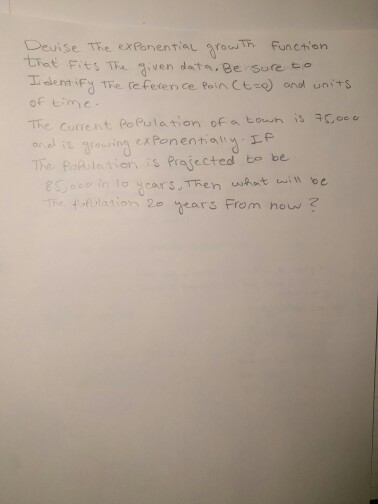 Devise The exponential growth function
that fits The given data. Be sure to
Identify The reference Poin (t=0) and units
of time.
The current Population of a town is 75,000
and is growing exponentially. If
The Population is Projected to be
85,000 in 10 years, Then what will be
The Population 20 years From now?